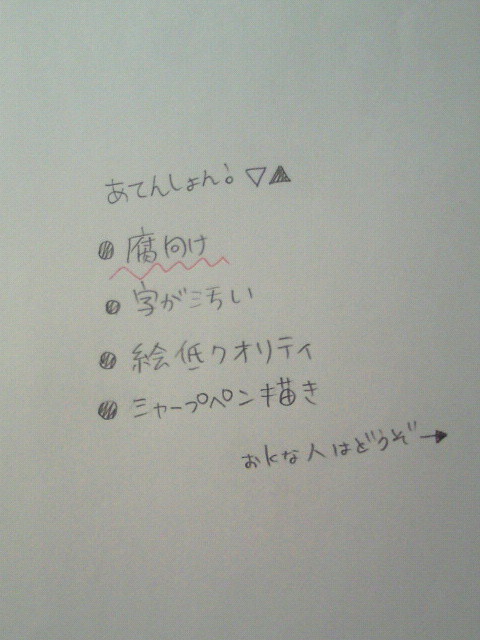 あてんしょん! ▽▲
● 腐向け
● 字が汚い
● 絵低クオリティ
● シャープペン描き
おkな人はどうぞ→